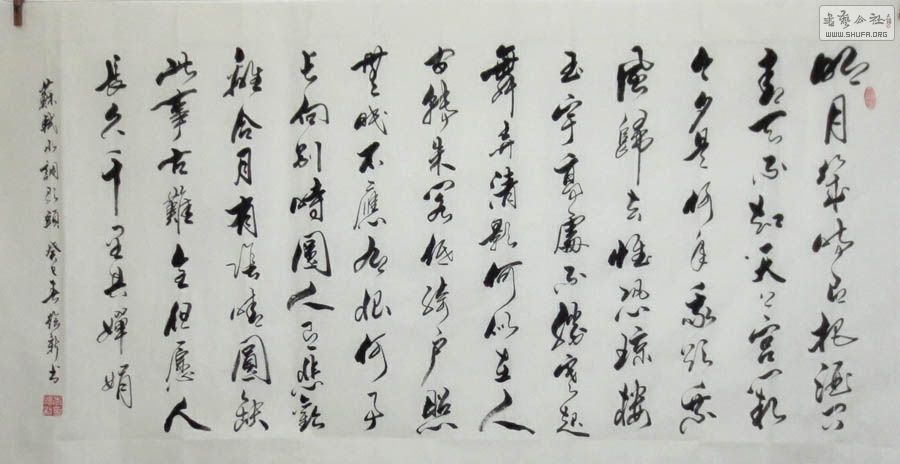 明月幾時有把酒問
青天不知天上宮闕
今夕是何年我欲乘
風歸去惟恐瓊樓
玉宇高處不勝寒起
舞弄清影何似在人
間轉朱閣低綺戶照
無眠不應有恨何事
長向別時圓人有悲歡
離合月有陰晴圓缺
此事古難全但願人
長久千里共嬋娟
蘇軾水調歌頭 癸巳春 书
书艺公社
WWW.SHUFA.ORG